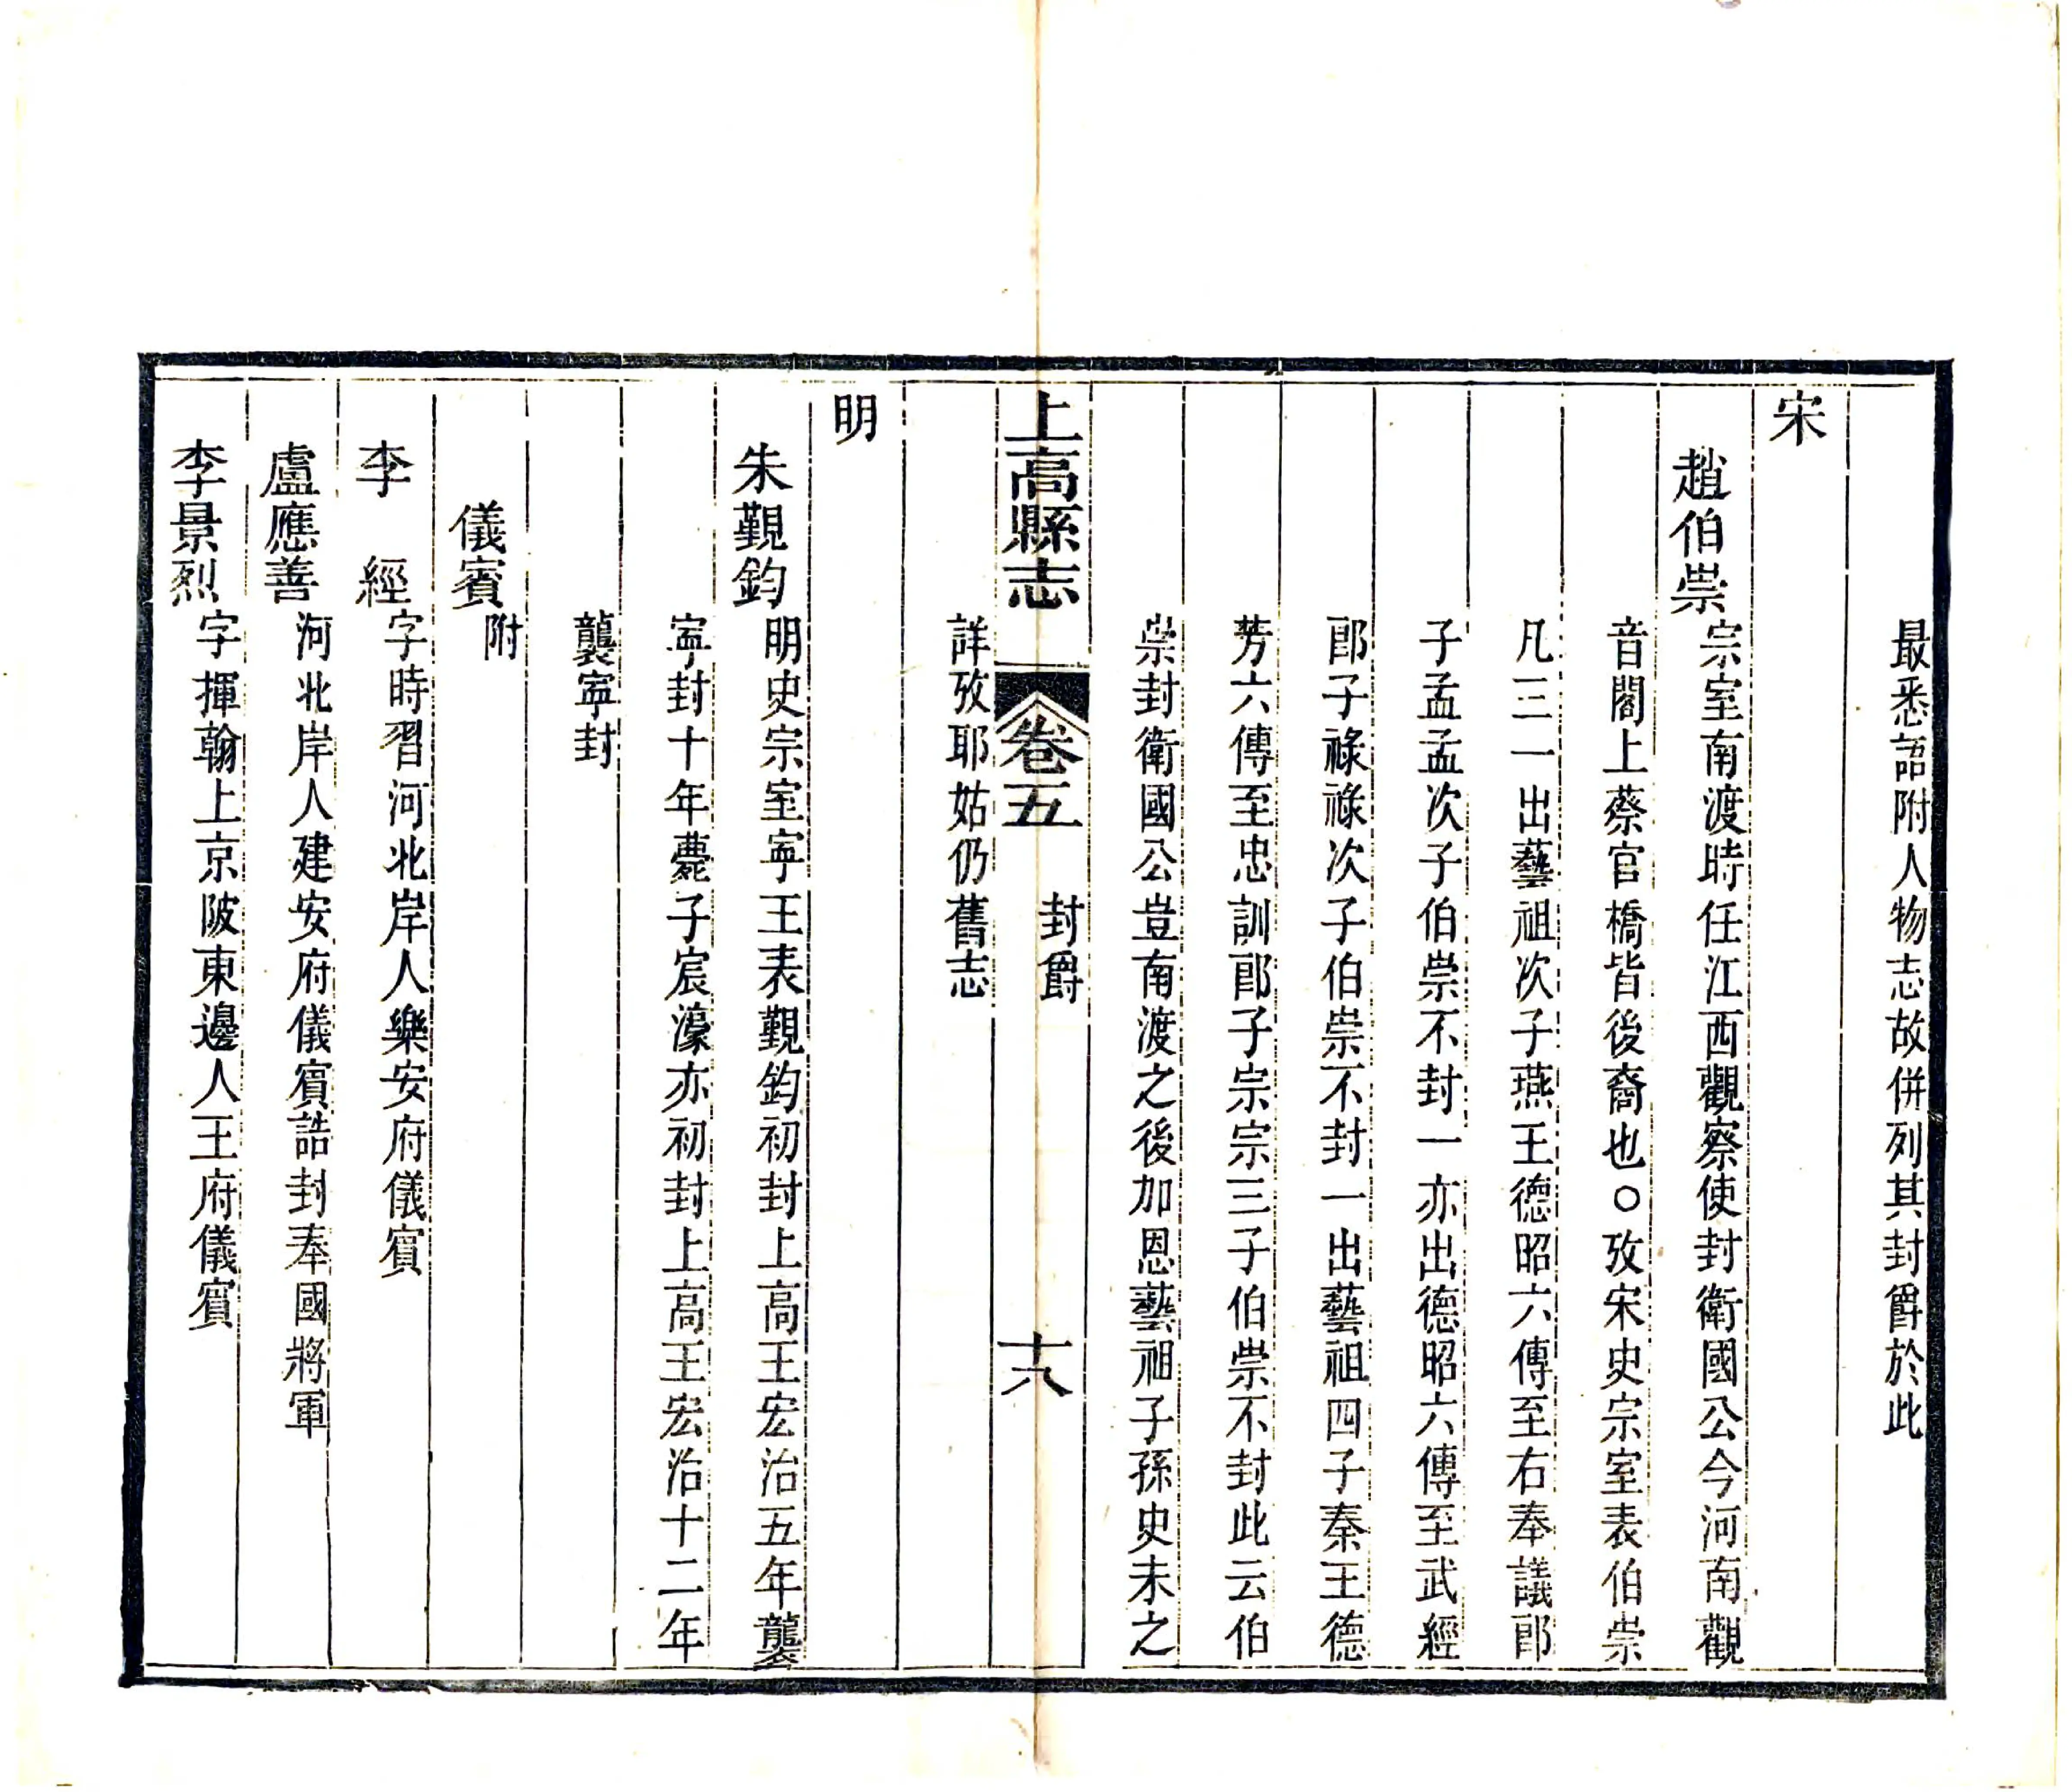 最悉語附人物志故併列其封爵於此
宋
趙伯崇宗室南渡時任江西觀察使封衛國公今河南觀
音閣上蔡官橋皆後裔也○攷宋史宗室表伯崇
凡三一出藝祖次子燕王德昭六傳至右奉議郎
子孟孟次子伯崇不封一亦出德昭六傳至武經
郎子祿祿次子伯崇不封一出藝祖四子秦王德
芳六傳至忠訓郎子宗宗三子伯崇不封此云伯
崇封衛國公豈南渡之後加恩藝祖子孫史未之
上高縣志 卷五 封爵 十八
詳攷耶姑仍舊志
明
朱覲鈞明史宗室寧王表覲鈞初封上高王宏治五年襲
寧封十年薨子宸濠亦初封上高王宏治十二年
襲寧封
儀賓附
李經字時習河北岸人樂安府儀賓
盧應善河北岸人建安府儀賓誥封奉國將軍
李景烈字揮翰上京陂東邊人王府儀賓